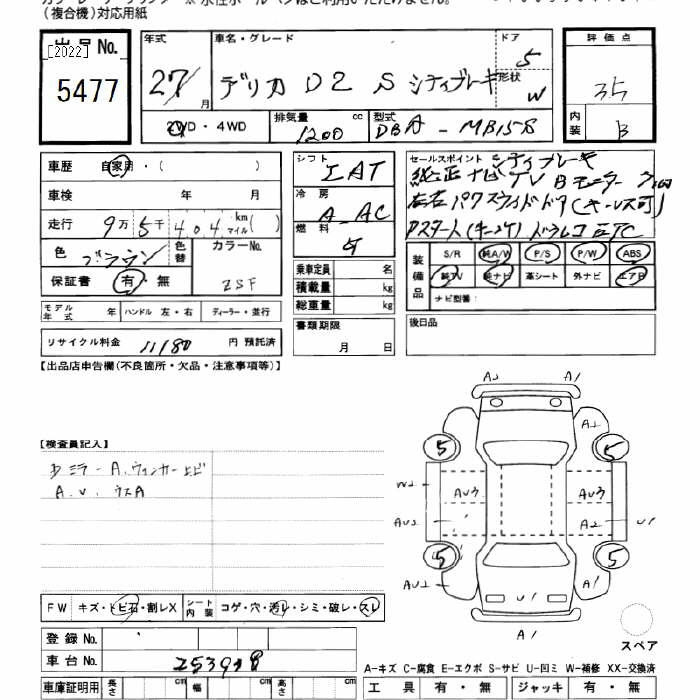 (複合機)対応用紙
出品No.
[2022]
5477
年式
27/
月
車名・グレード
デリカ D2 S シティブレーキ
ドア
5
形状
W
評価点
3.5
内装
B
2WD・4WD
排気量
cc
1200
型式
DBA - MB15S
車歴
自家用・( )
車検
年 月
走行
9万5千404
km
マイル( )
色
ブラウン
色替
カラーNo.
ZSF
保証書
有・無
モデル年式
年
ハンドル 左・右
ディーラー・並行
リサイクル料金
11180
円 預託済
シフト
IAT
冷房
A_AC
燃料
乗車定員
名
積載量
kg
総重量
kg
書類期限
月 日
セールスポイント
シティブレーキ
純正ナビ TV Bモニター
左右パワースライドドア(キーレス可)
Pスタート(キー2ケ) ドラレコ ETC
装備品
S/R
純A/W
P/S
P/W
ABS
純TV
純ナビ
革シート
外ナビ
エアB
ナビ型番:
後日品
【出品店申告欄(不良箇所・欠品・注意事項等)】
【検査員記入】
ミラーA.ウィンカーヒビ
A.U.ウスA
FW
キズ・トビ石・割レX
シート内装
コゲ・穴・汚レ・シミ・破レ・スレ
登録No.
車台No.
253918
車庫証明用
長さ
cm
幅
cm
高さ
cm
A2
A1
A2
5
5
W2
AU3
AU3
AU2
A2
U1
5
5
AU2
A1
U1
A1
スペア
A−キズ C−腐食 E−エクボ S−サビ U−凹ミ W−補修 XX−交換済
工具
有・無
ジャッキ
有・無